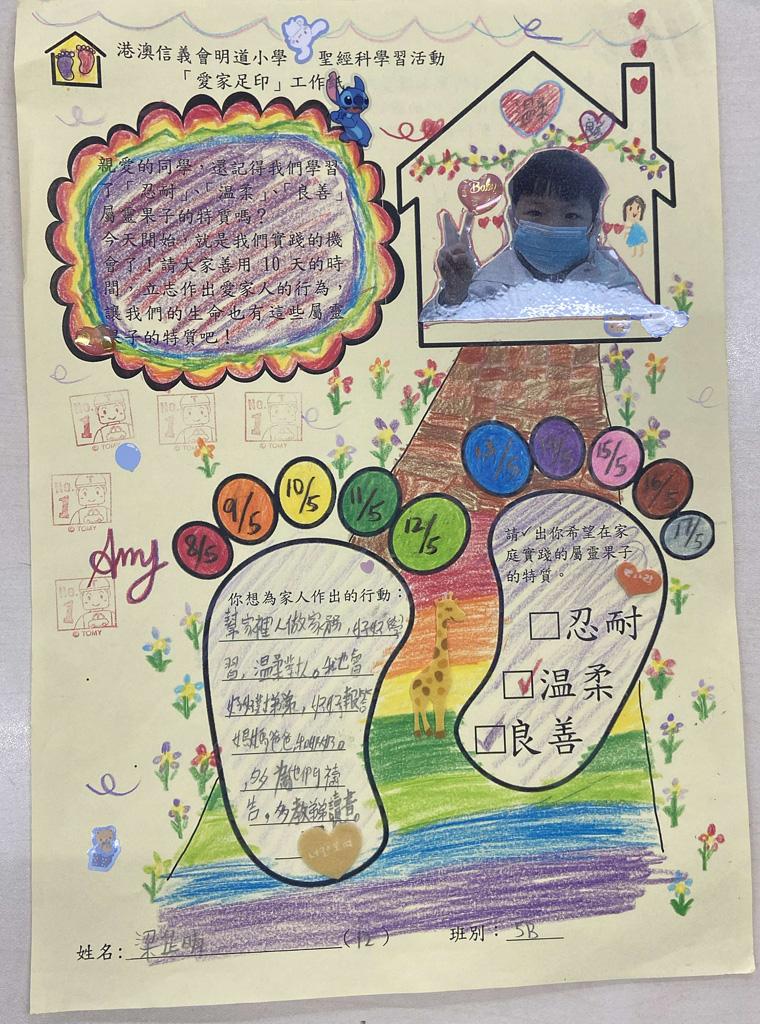 港澳信義會明道小學 聖經科學習活動
「愛家足印」工作紙
溫柔
良善
親愛的同學，還記得我們學習
了「忍耐」、「溫柔」、「良善」
屬靈果子的特質嗎？
今天開始，就是我們實踐的機
會了！請大家善用 10 天的時
間，立志作出愛家人的行為，
讓我們的生命也有這些屬靈
果子的特質吧！
Baby
No. 1
© TOMY
No. 1
© TOMY
No. 1
© TOMY
No. 1
© TOMY
No. 1
© TOMY
Amy
8/5
9/5
10/5
11/5
12/5
13/5
14/5
15/5
16/5
17/5
你想為家人作出的行動：
幫家裡人做家務，好好學
習，溫柔對人。我也會
好好對弟弟，好好報答
媽媽爸爸和
，多為他們禱
告，多教弟弟讀書。
請✓出你希望在家
庭實踐的屬靈果子
的特質。
□忍耐
☑溫柔
☑良善
姓名：梁 晴 (12)
班別：5B